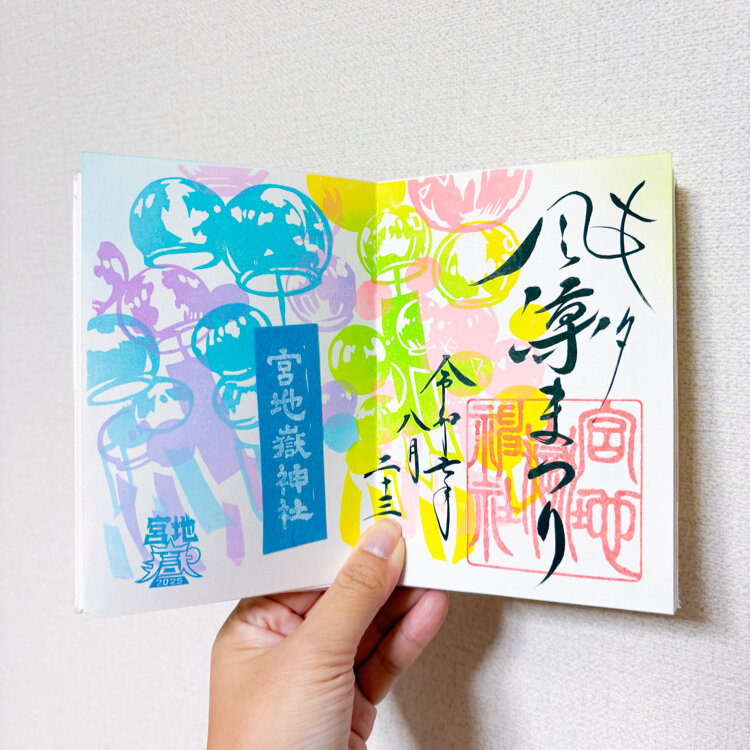 風涼まつり
令和七年
八月
二十三
宮地嶽神社
宮地嶽神社
宮地嶽
2025